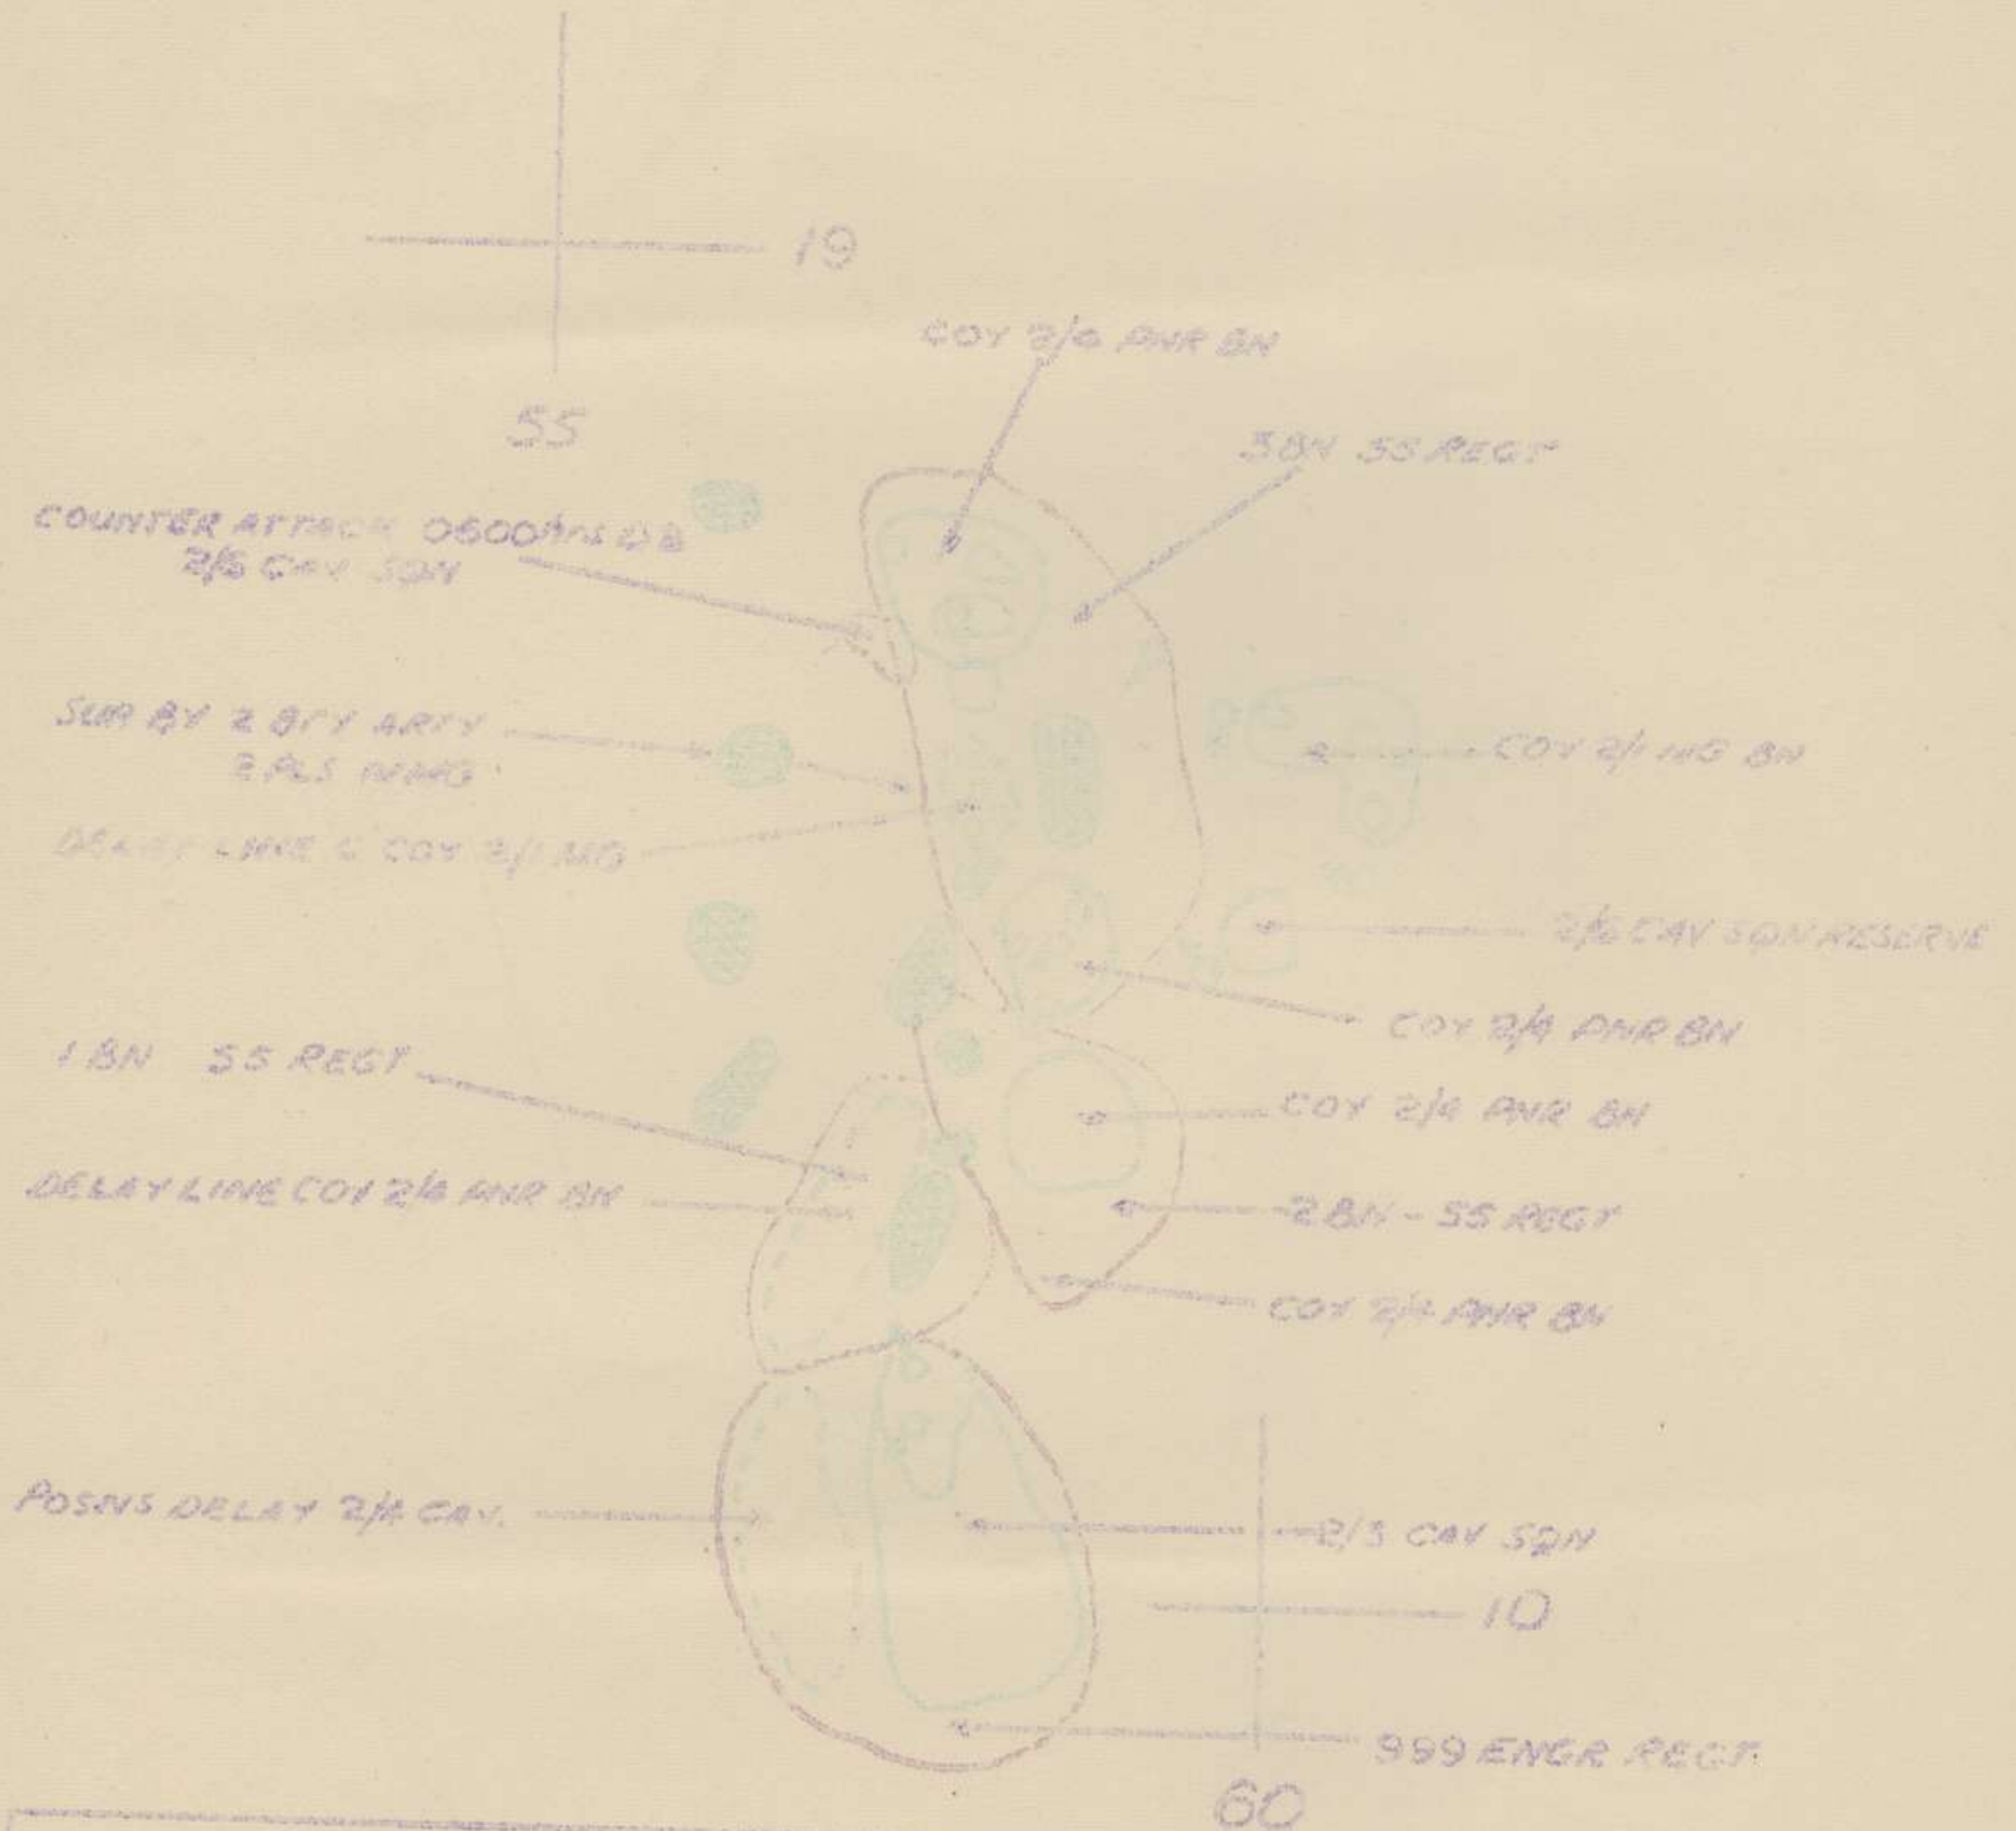 19
55
COY 2/6 PNR BN
3BN 55 REGT
COUNTER ATTACK 0600hrs
2/6 CAV SQN
BY 2 BTY ARTY
2 PLS
COY 2/1 MG BN
DELAY LINE C COY 2/1 MG
2/6 CAV SQN RESERVE
COY 2/4 PNR BN
1 BN 55 REGT
COY 2/4 PNR BN
DELAY LINE COY 2/4 PNR BN
2BN - 55 REGT
COY 2/4 PNR BN
POSNS DELAY 2/4 CAV.
2/3 CAV SQN
10
999 ENGR REGT.
60